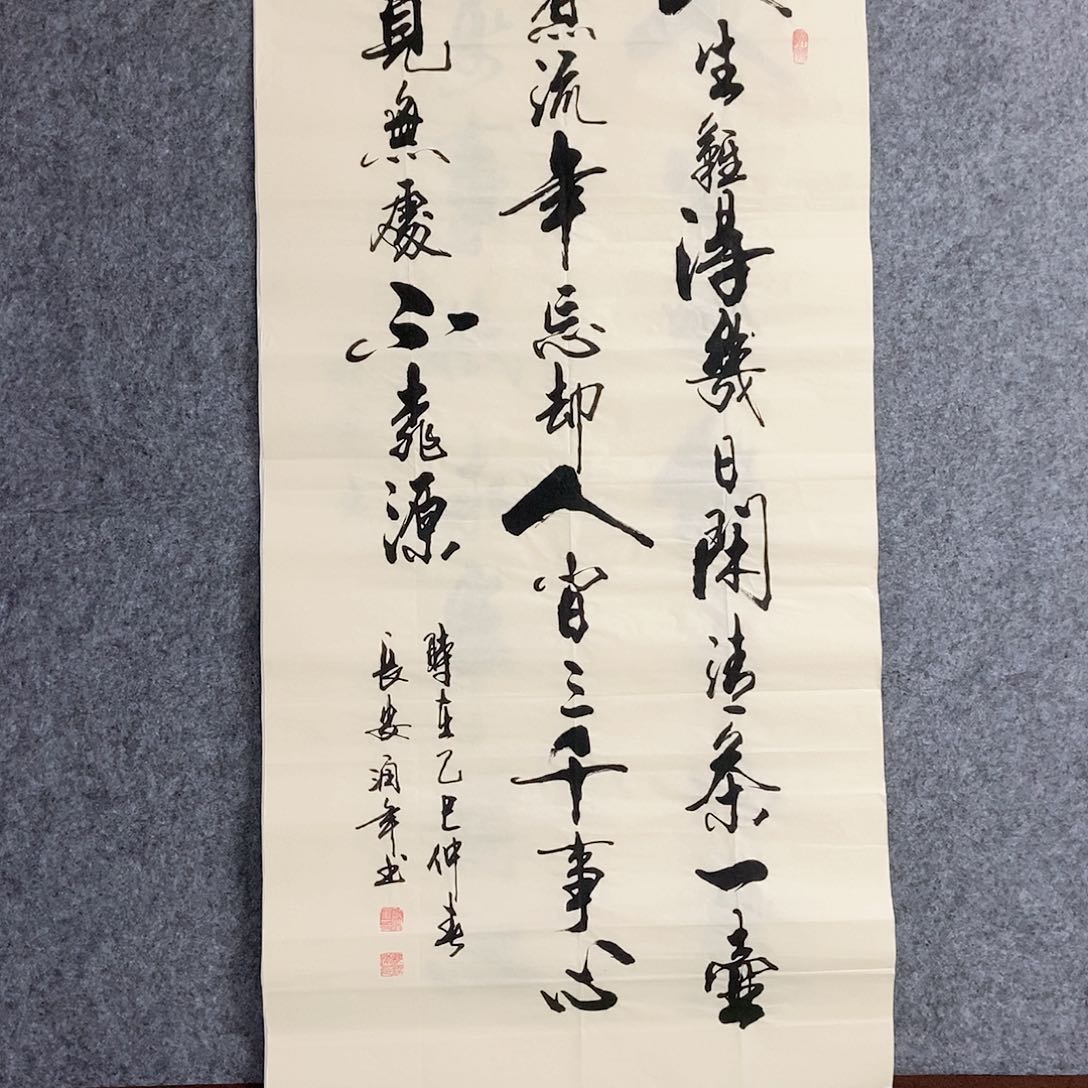 人生難得幾日閑清茶一壺
煮流年忘却人間三千事心
見無處不桃源
時在乙巳仲春
長安潤年书